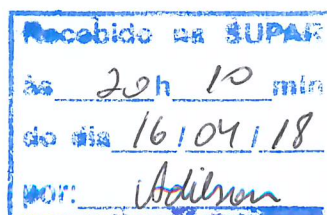 Recebido na SUPAR
às 20h 10 min
do dia 16/04/18
por: Adilson